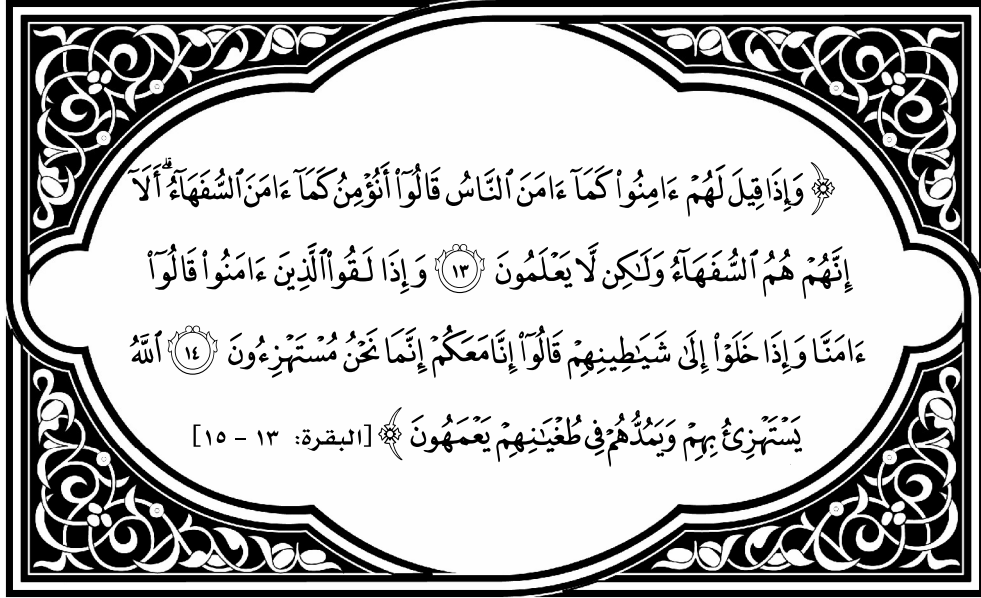 ﴿ وَإِذَا قِيلَ لَهُمْ ءَامِنُوا۟ كَمَآ ءَامَنَ ٱلنَّاسُ قَالُوٓا۟ أَنُؤْمِنُ كَمَآ ءَامَنَ ٱلسُّفَهَآءُ ۗ أَلَآ
إِنَّهُمْ هُمُ ٱلسُّفَهَآءُ وَلَـٰكِن لَّا يَعْلَمُونَ ١٣ وَإِذَا لَقُوا۟ ٱلَّذِينَ ءَامَنُوا۟ قَالُوٓا۟
ءَامَنَّا وَإِذَا خَلَوْا۟ إِلَىٰ شَيَـٰطِينِهِمْ قَالُوٓا۟ إِنَّا مَعَكُمْ إِنَّمَا نَحْنُ مُسْتَهْزِءُونَ ١٤ ٱللَّهُ
يَسْتَهْزِئُ بِهِمْ وَيَمُدُّهُمْ فِى طُغْيَـٰنِهِمْ يَعْمَهُونَ ﴾ [البقرة: ١٣ - ١٥]